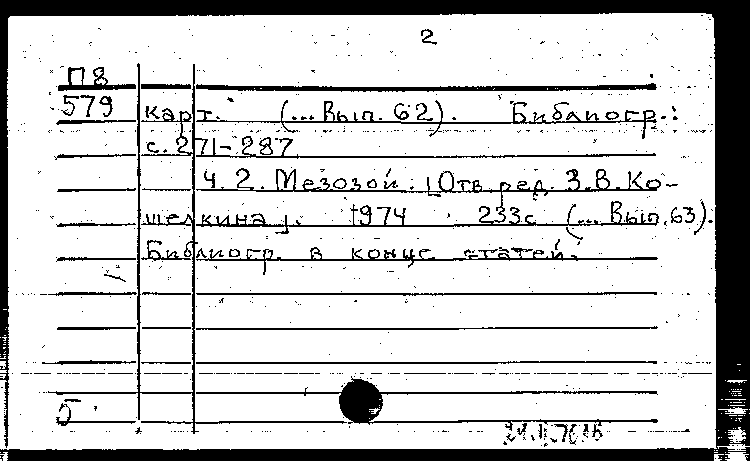 2
П8
579 карт. (... Вып. 62). Библиогр.:
с. 271-287
Ч. 2. Мезозой. [Отв. ред. З.В. Ко-
шелкина]. 1974 233с (... Вып. 63).
Библиогр. в конце статей.
5